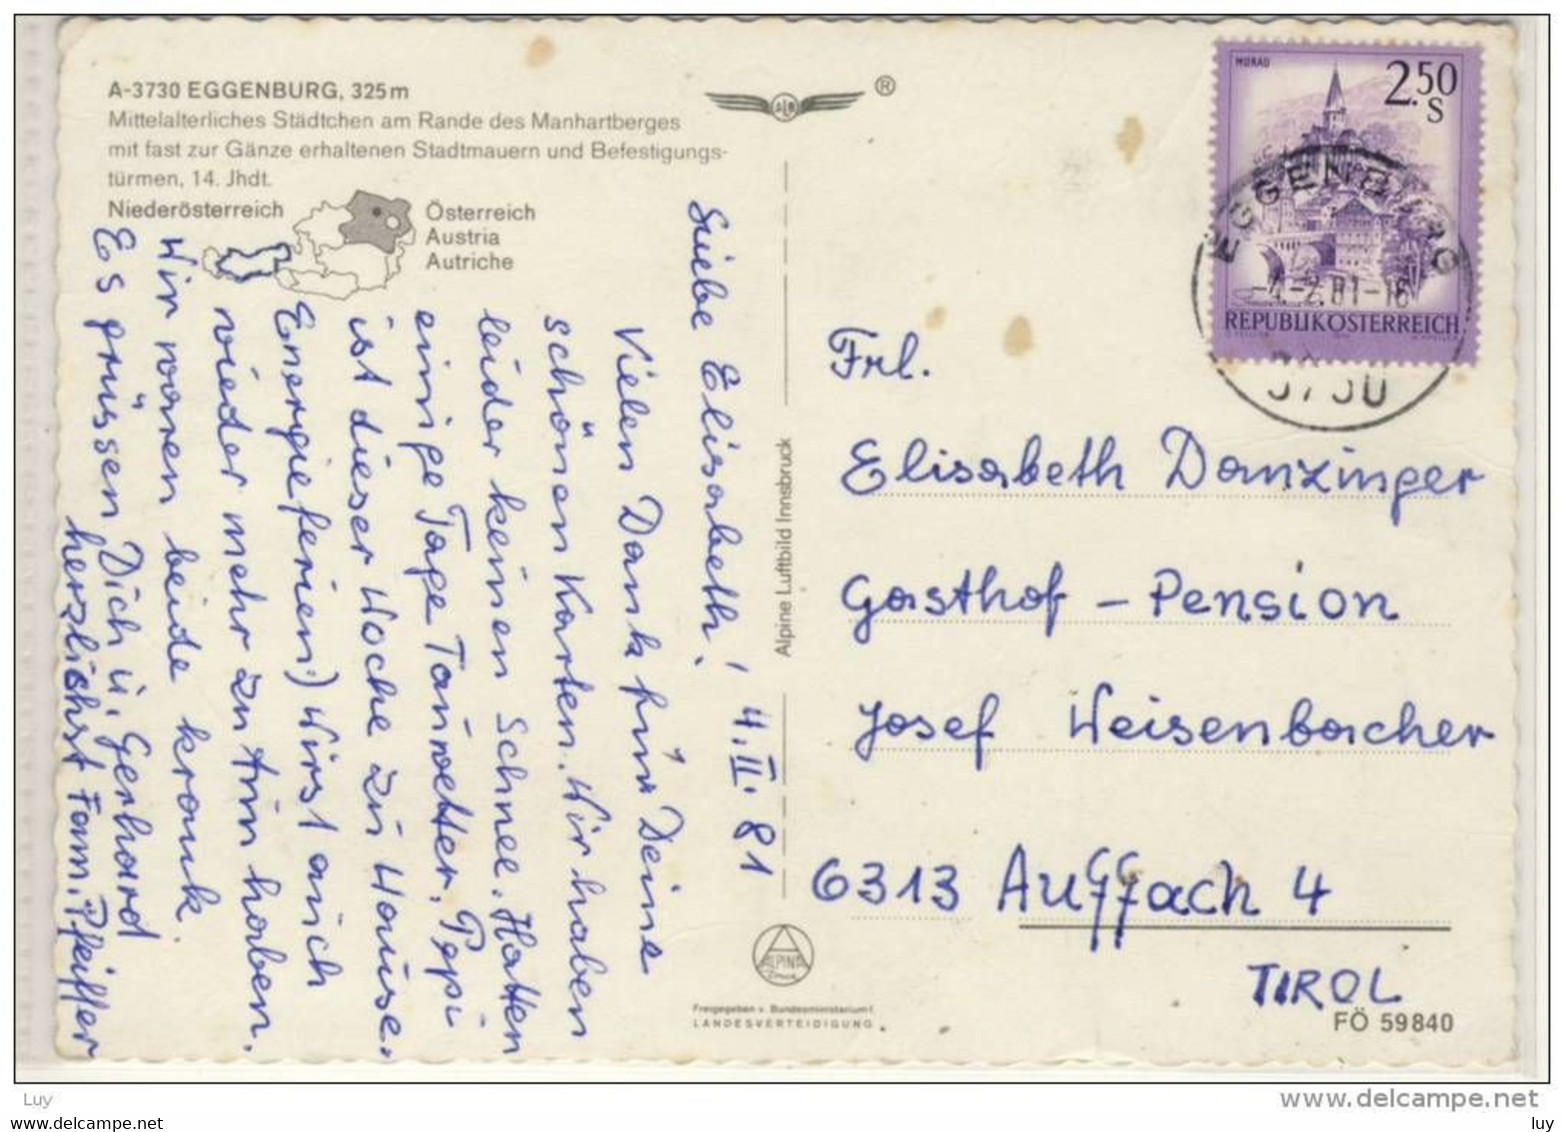 A-3730 EGGENBURG, 325m
Mittelalterliches Städtchen am Rande des Manhartberges
mit fast zur Gänze erhaltenen Stadtmauern und Befestigungs-
türmen, 14. Jhdt.
Niederösterreich
Österreich
Austria
Autriche
®
Liebe Elisabeth! 4.II.81
Vielen Dank für Deine
schönen Karten. Wir haben
leider keinen Schnee. Hatten
einige Tage Tauwetter. Pepi
ist dieser Woche zu Hause.
Energieferien) Wirst auch
wieder mehr zu tun haben.
Wir waren beide krank.
Es grüssen Dich u. Gerhard
herzlichst Fam. Pfeiffer
Alpine Luftbild Innsbruck
ALPINA
Druck
Freigegeben v. Bundesministerium f.
LANDESVERTEIDIGUNG
MURAU
2.50
S
REPUBLIK ÖSTERREICH
EGGENBURG
-4-2.81-16
3730
Frl.
Elisabeth Danzinger
Gasthof - Pension
Josef Weisenbacher
6313 Auffach 4
TIROL
FÖ 59840
Luy
www.delcampe.net
www.delcampe.com
luy
luy